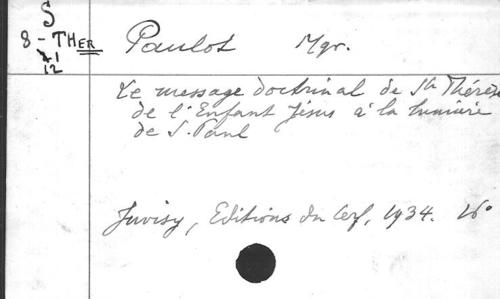 S
8 - THER
21
12
Paulot Mgr.
Le message doctrinal de Ste Thérèse
de l'Enfant Jésus à la lumière
de S. Paul
Juvisy, Editions du Cerf, 1934. 16°